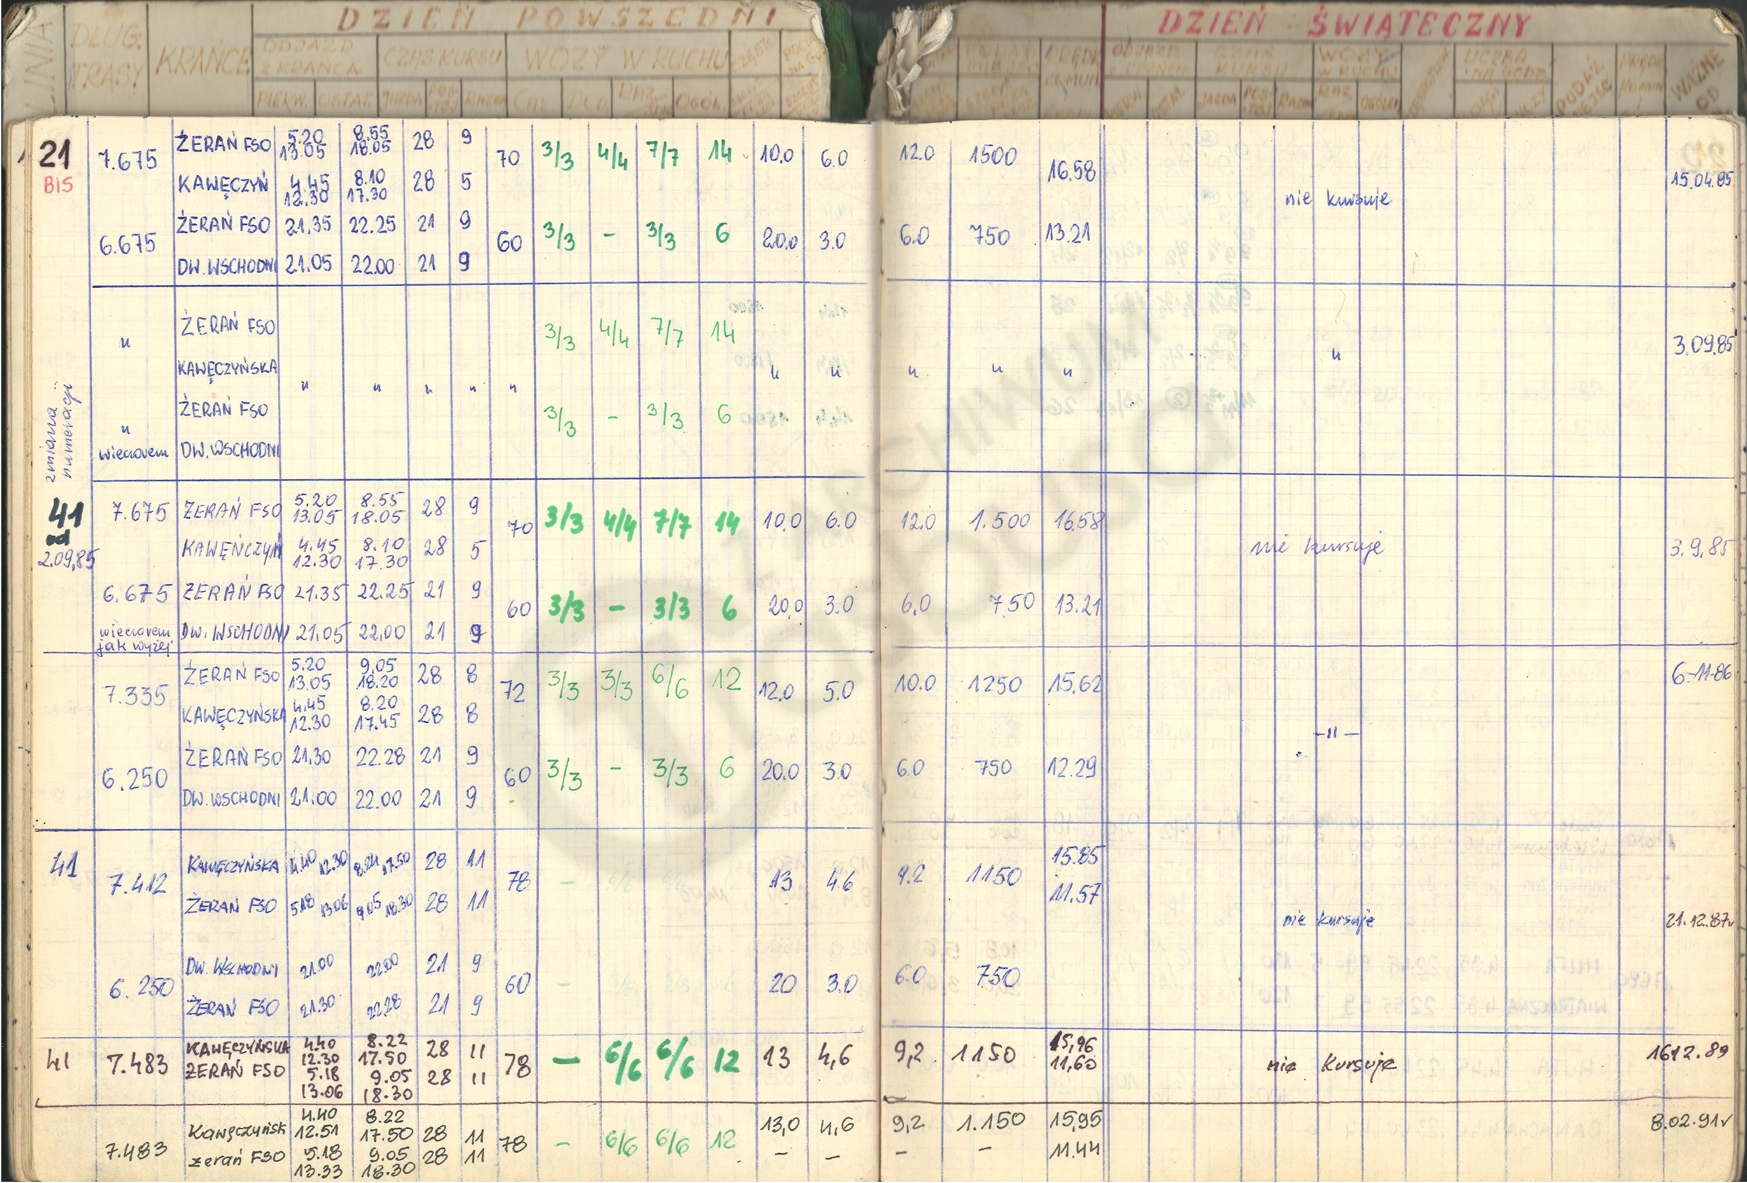 DZIEŃ POWSZEDNI
DZIEŃ ŚWIĄTECZNY
LINIA DŁUG. TRASY KRAŃCE ODJAZD Z KRAŃCA CZAS KURSU WOZY W RUCHU
WAŻNE OD
21 BIS 7.675 ŻERAŃ FSO 5.20 8.55 28 9 70 3/3 4/4 7/7 14 10.0 6.0 12.0 1500 16.58 nie kursuje 15.04.85
13.05 18.05
KAWĘCZYN 4.45 8.10 28 5
12.30 17.30
6.675 ŻERAŃ FSO 21.35 22.25 21 9 60 3/3 - 3/3 6 20.0 3.0 6.0 750 13.21
DW. WSCHODNI 21.05 22.00 21 9
" ŻERAŃ FSO 3/3 4/4 7/7 14 3.09.85
KAWĘCZYŃSKA " " " " " " " " " " "
" ŻERAŃ FSO 3/3 - 3/3 6
wieczorem DW. WSCHODNI
zmiana numeracji
41 od 2.09.85 7.675 ŻERAŃ FSO 5.20 8.55 28 9 70 3/3 4/4 7/7 14 10.0 6.0 12.0 1.500 16.58 nie kursuje 3.9.85
13.05 18.05
KAWĘŃCZYN 4.45 8.10 28 5
12.30 17.30
6.675 ŻERAŃ FSO 21.35 22.25 21 9 60 3/3 - 3/3 6 20.0 3.0 6.0 750 13.21
wieczorem jak wyżej DW. WSCHODNI 21.05 22.00 21 9
7.335 ŻERAŃ FSO 5.20 9.05 28 8 72 3/3 3/3 6/6 12 12.0 5.0 10.0 1250 15.62 6-11-86
13.05 18.20
KAWĘCZYŃSKA 4.45 8.20 28 8
12.30 17.45
-"-
6.250 ŻERAŃ FSO 21.30 22.28 21 9 60 3/3 - 3/3 6 20.0 3.0 6.0 750 12.29
DW. WSCHODNI 21.00 22.00 21 9
41 7.412 KAWĘCZYŃSKA 4.40 12.30 8.24 17.50 28 11 78 - 13 4.6 9.2 1150 15.85
11.57
ŻERAŃ FSO 5.18 13.06 9.05 18.30 28 11 nie kursuje 21.12.87r
6.250 DW. WSCHODNI 21.00 22.00 21 9 60 - 20 3.0 6.0 750
ŻERAŃ FSO 21.30 22.28 21 9
41 7.483 KAWĘCZYŃSKA 4.40 8.22 28 11 78 - 6/6 6/6 12 13 4,6 9,2 1150 15,96 nie kursuje 16.12.89
12.30 17.50 11,60
ŻERAŃ FSO 5.18 9.05 28 11
13.06 18.30
7.483 Kawęczyńsk 4.40 8.22 28 11 78 - 6/6 6/6 12 13,0 4,6 9,2 1.150 15,95 8.02.91r
12.51 17.50 - - - - 11.44
Żerań FSO 5.18 9.05 28 11
13.33 18.30